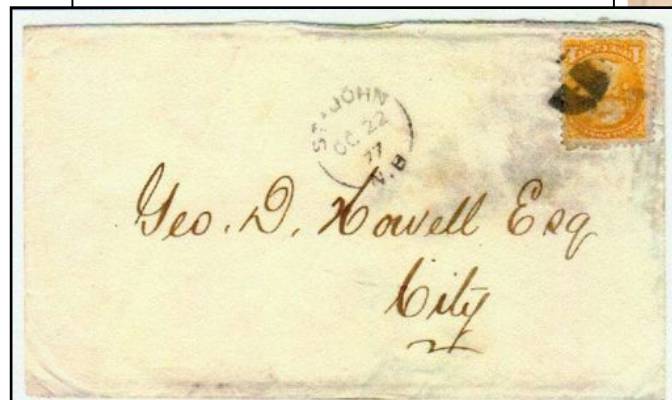 ST. JOHN
OC 22
77
N.B
Geo. D. Howell Esq
City